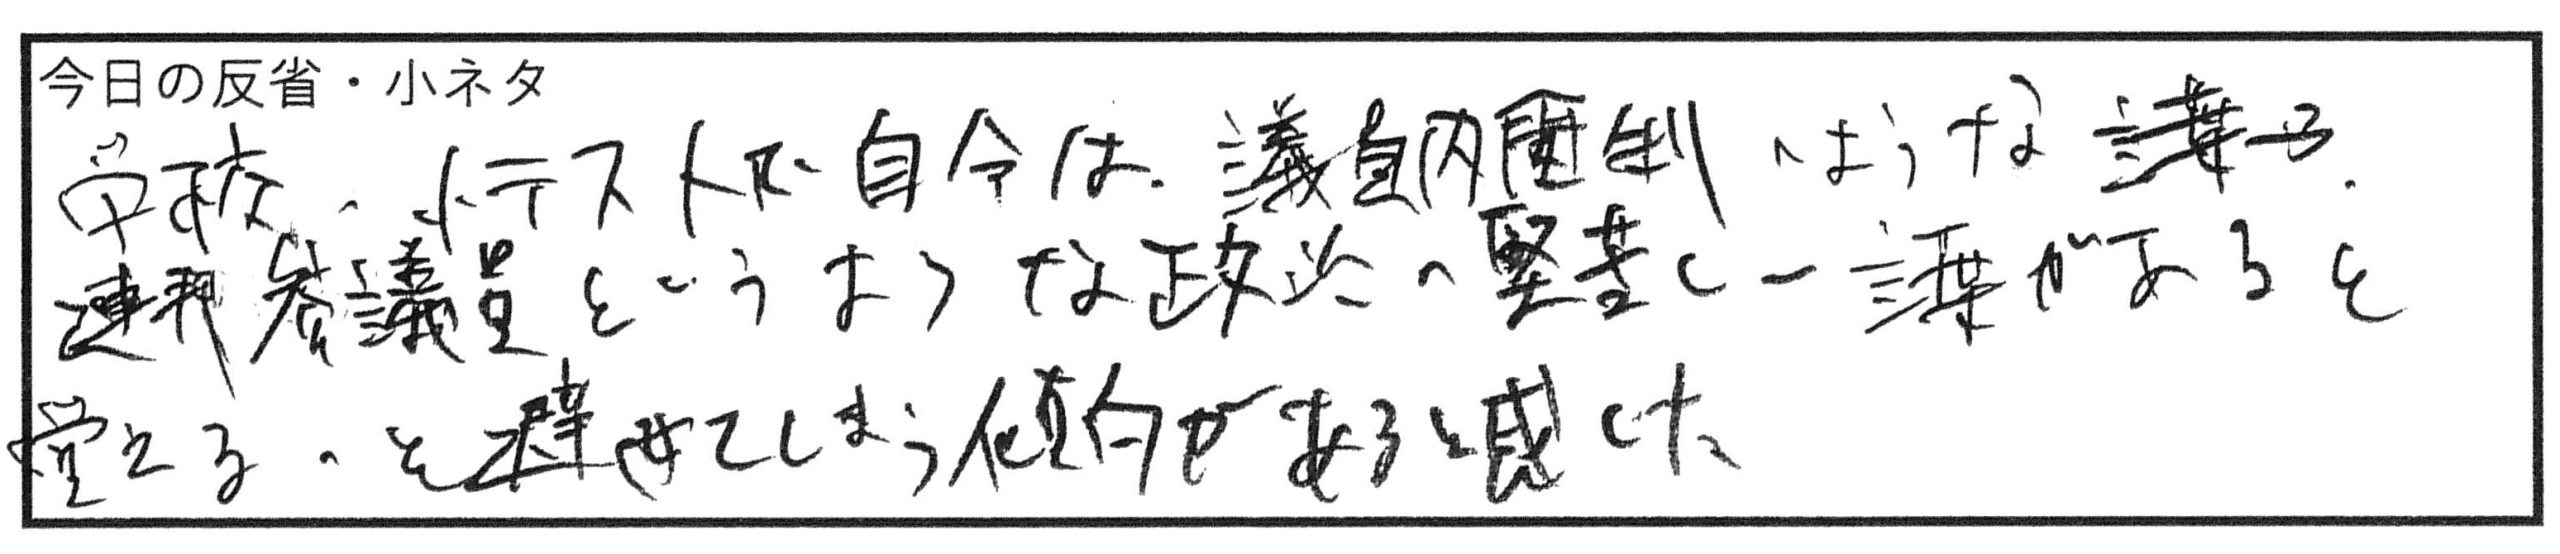 今日の反省・小ネタ
学校の小テストで自分は、議員内閣制のような講や、
連邦参議員というような政治の堅苦しい講があると
覚えるのを避けてしまう傾向があると感じた